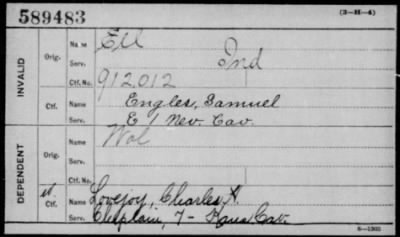 589483 (3—H—4)
INVALID
Orig. Name Ell
Serv. Ind
Ctf. No. 912,012
Ctf. Name Engles, Samuel
Serv. E 1 Nev. Cav.
DEPENDENT
Orig. Name Wol
Serv.
Ctf. Name Lovejoy, Charles
Serv. Chaplain, 7 - Kans Cav.